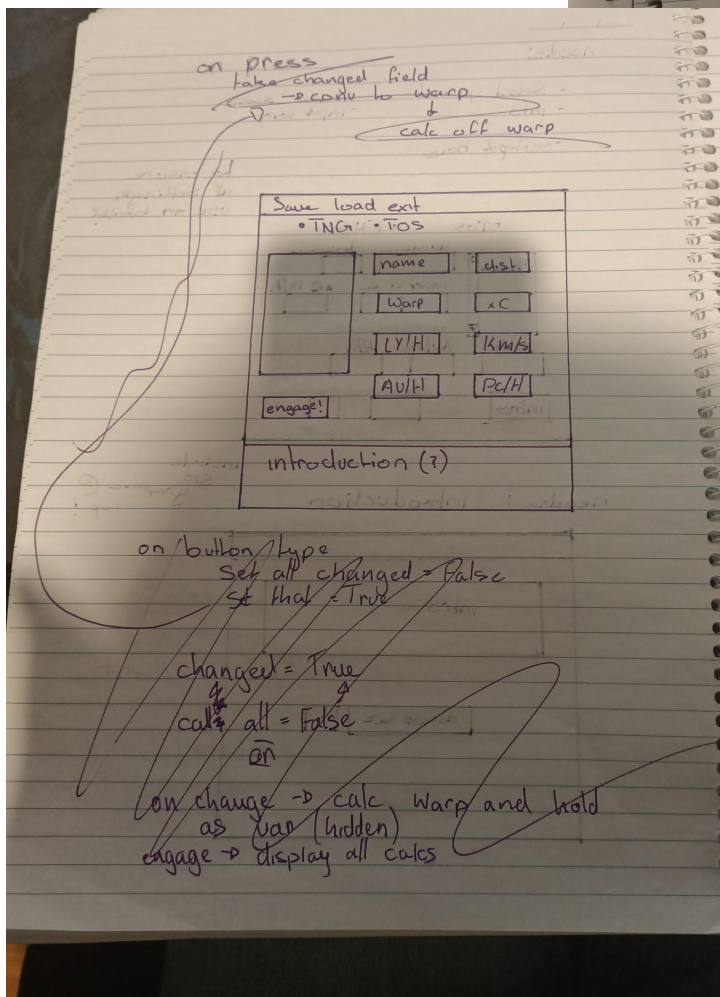 on press
take changed field
→ conv to warp
calc off warp
Save load exit
• TNG • TOS
name dist.
Warp xC
LY/H Km/s
AU/H Pc/H
engage!
introduction (?)
on button type
set all changed = False
set that = True
changed = True
call all = False
on
on change → calc warp and hold
as var (hidden)
engage → display all calcs